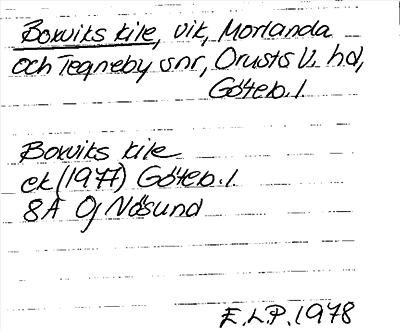 Bokviks kile, vik, Morlanda
och Tegneby snr, Orusts V. hd,
Göteb. l.
Bokviks kile
ek (1977) Göteb. l.
8A 0j Nösund
E.L.P. 1978